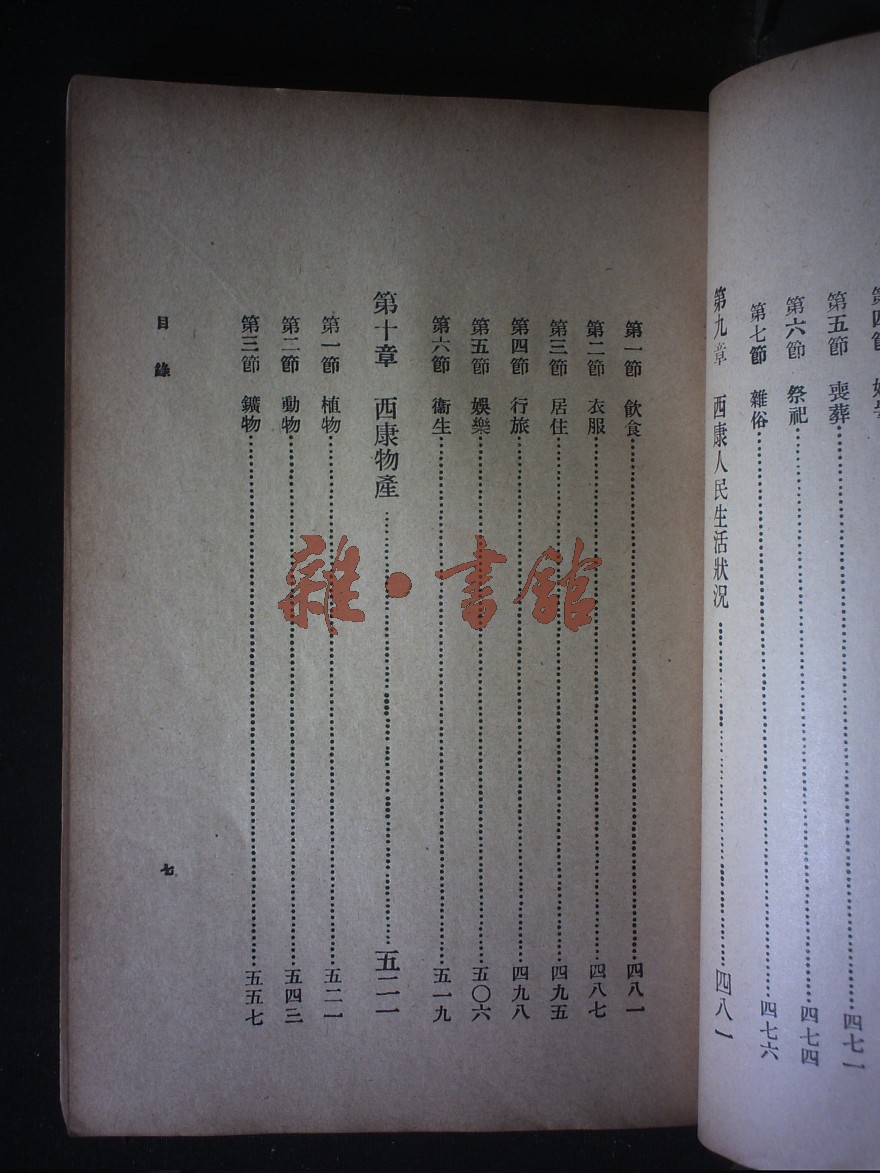 第五節　喪葬…………四七一
第六節　祭祀…………四七四
第七節　雜俗…………四七六
第九章　西康人民生活狀況…………四八一
第一節　飲食…………四八一
第二節　衣服…………四八七
第三節　居住…………四九五
第四節　行旅…………四九八
第五節　娛樂…………五〇六
第六節　衞生…………五一九
第十章　西康物產…………五二一
第一節　植物…………五二一
第二節　動物…………五四三
第三節　鑛物…………五五七
目錄
七
雜・書館